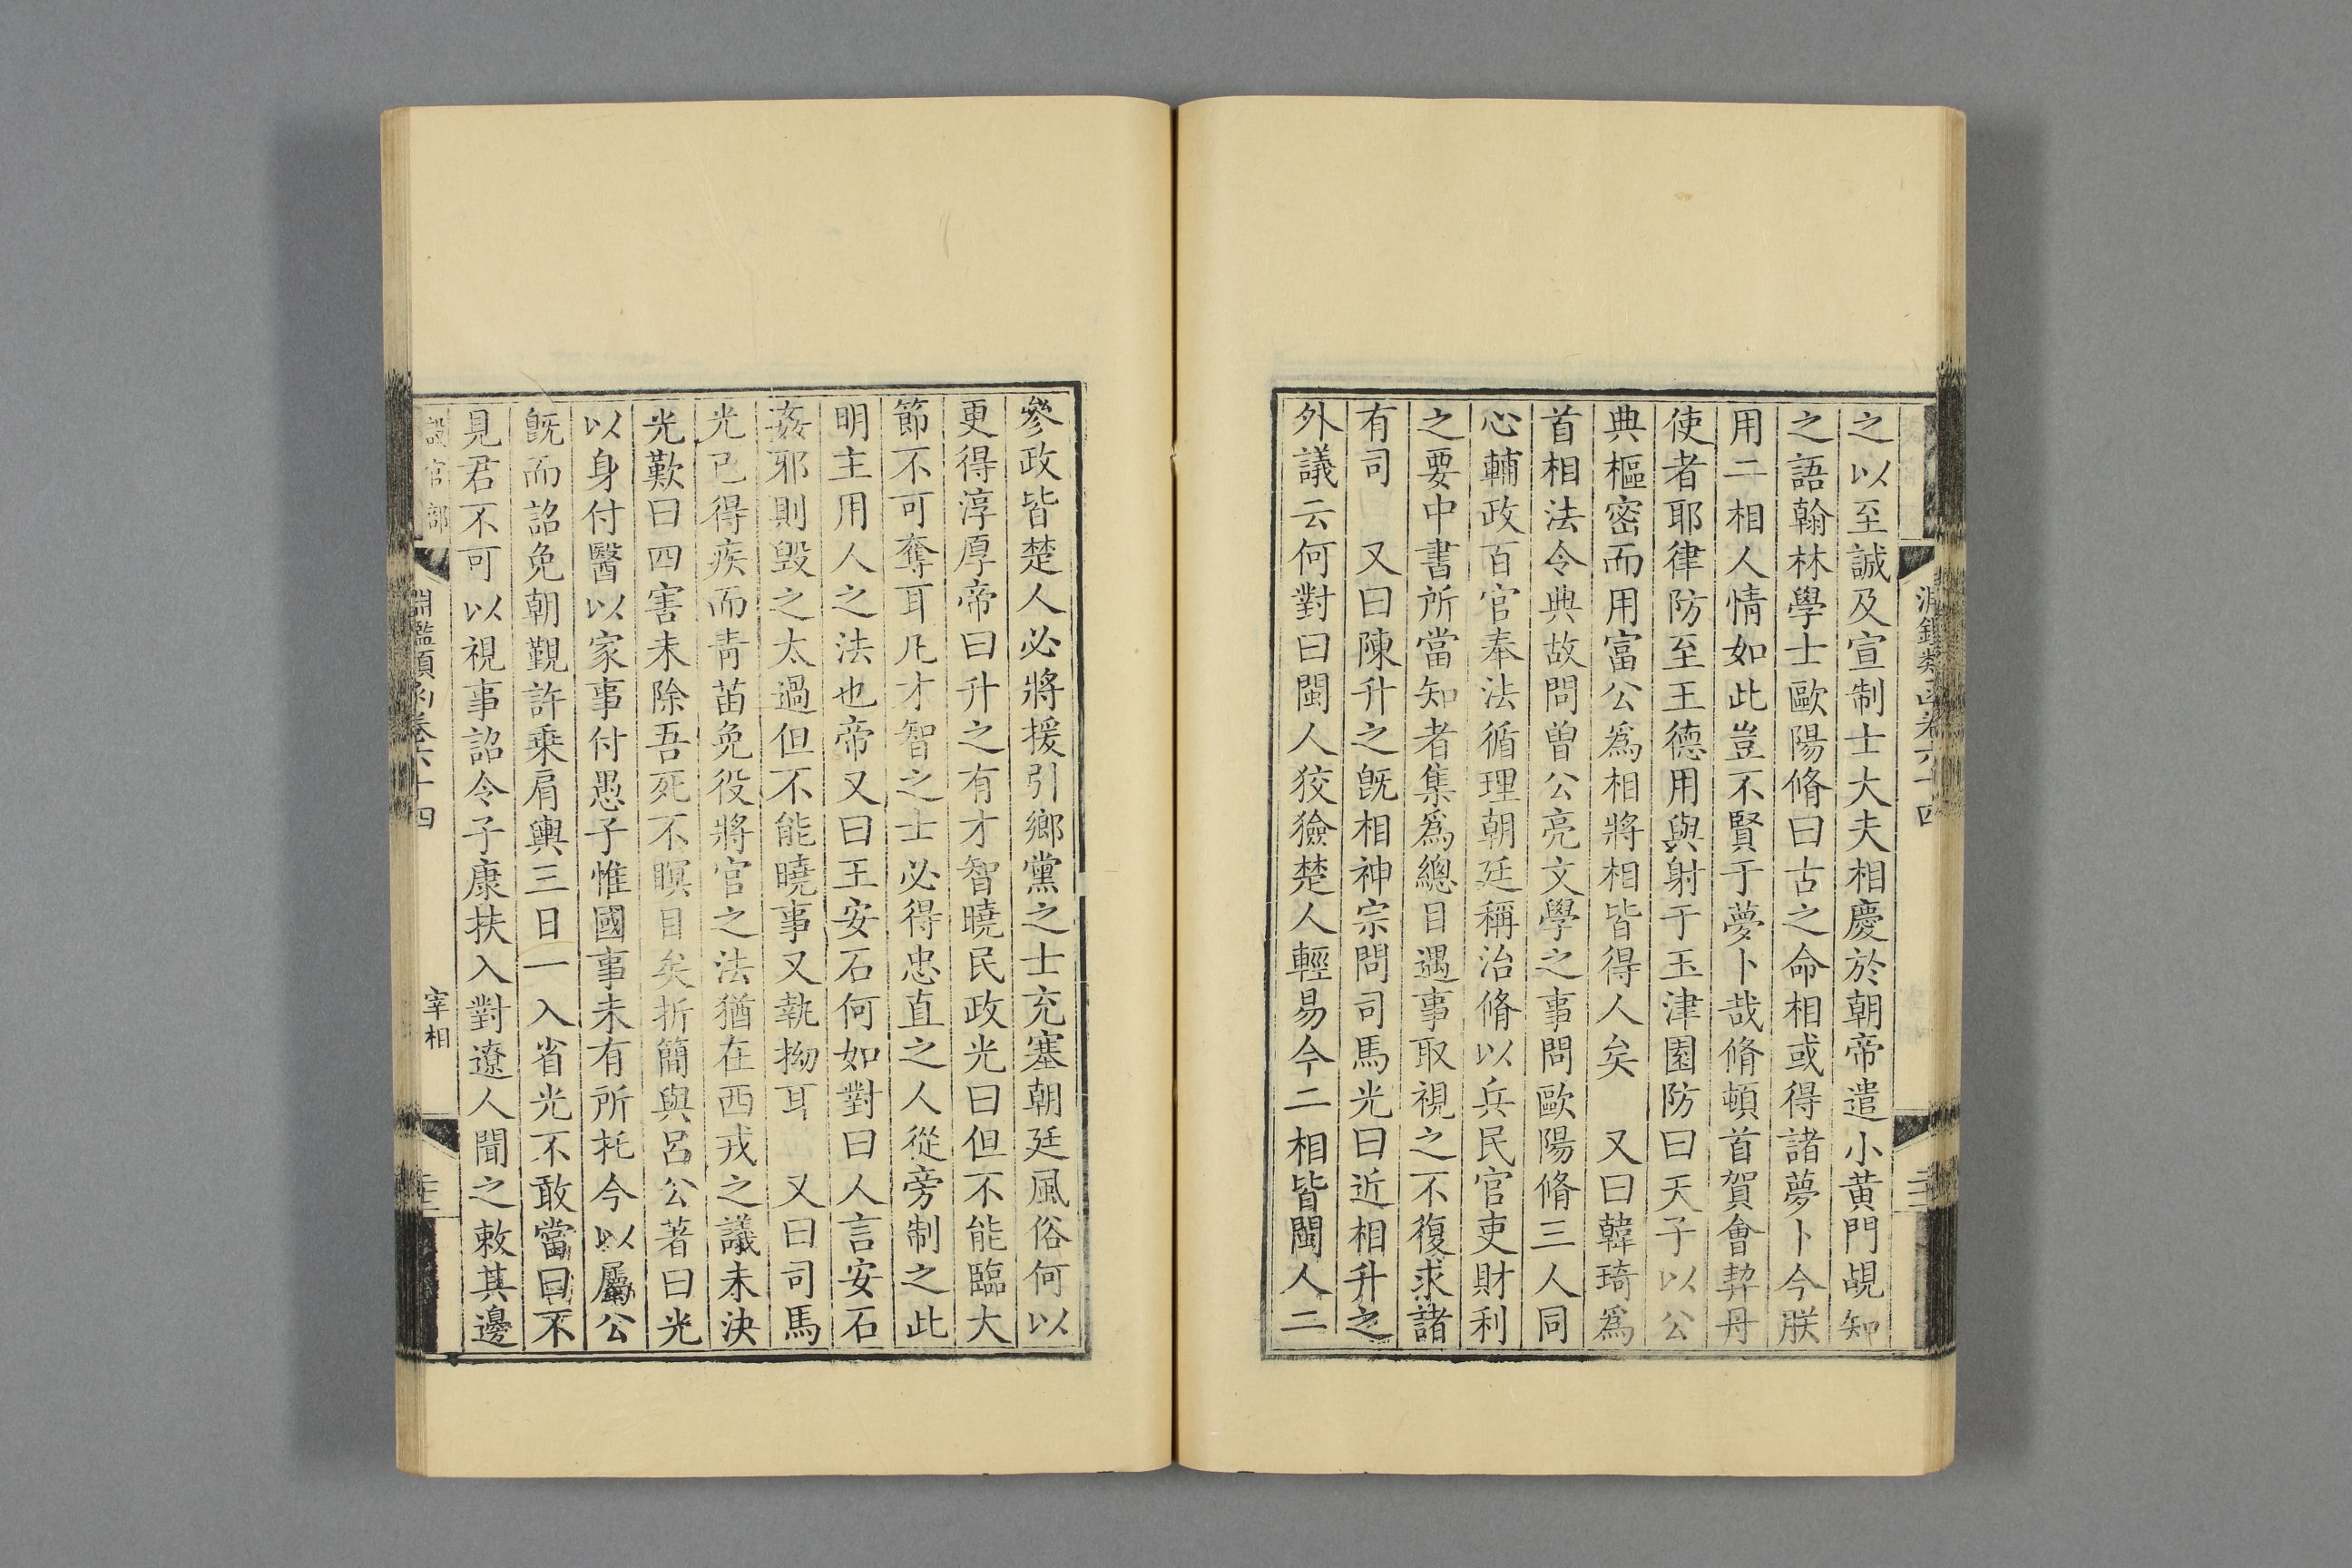 之以至誠及宣制士大夫相慶於朝帝遣小黄門覘知
之語翰林學士歐陽脩曰古之命相或得諸夢卜今朕
用二相人情如此豈不賢于夢卜哉脩頓首賀會契丹
使者耶律防至王德用與射于玉津園防曰天子以公
典樞密而用富公爲相將相皆得人矣　又曰韓琦爲
首相法令典故問曾公亮文學之事問歐陽脩三人同
心輔政百官奉法循理朝廷稱治脩以兵民官吏財利
之要中書所當知者集爲總目遇事取視之不復求諸
有司　又曰陳升之旣相神宗問司馬光曰近相升之
外議云何對曰閩人狡獪楚人輕易今二相皆閩人二
參政皆楚人必將援引鄉黨之士充塞朝廷風俗何以
更得淳厚帝曰升之有才智曉民政光曰但不能臨大
節不可奪耳凡才智之士必得忠直之人從旁制之此
明主用人之法也帝又曰王安石何如對曰人言安石
姦邪則毁之太過但不能曉事又執拗耳　又曰司馬
光已得疾而靑苗免役將官之法猶在西戎之議未決
光歎曰四害未除吾死不瞑目矣折簡與呂公著曰光
以身付醫以家事付愚子惟國事未有所托今以屬公
旣而詔免朝覲許乗肩輿三日一入省光不敢當曰不
見君不可以視事詔令子康扶入對遼人聞之敕其邊
設官部
淵鑑類函卷六十四
宰相